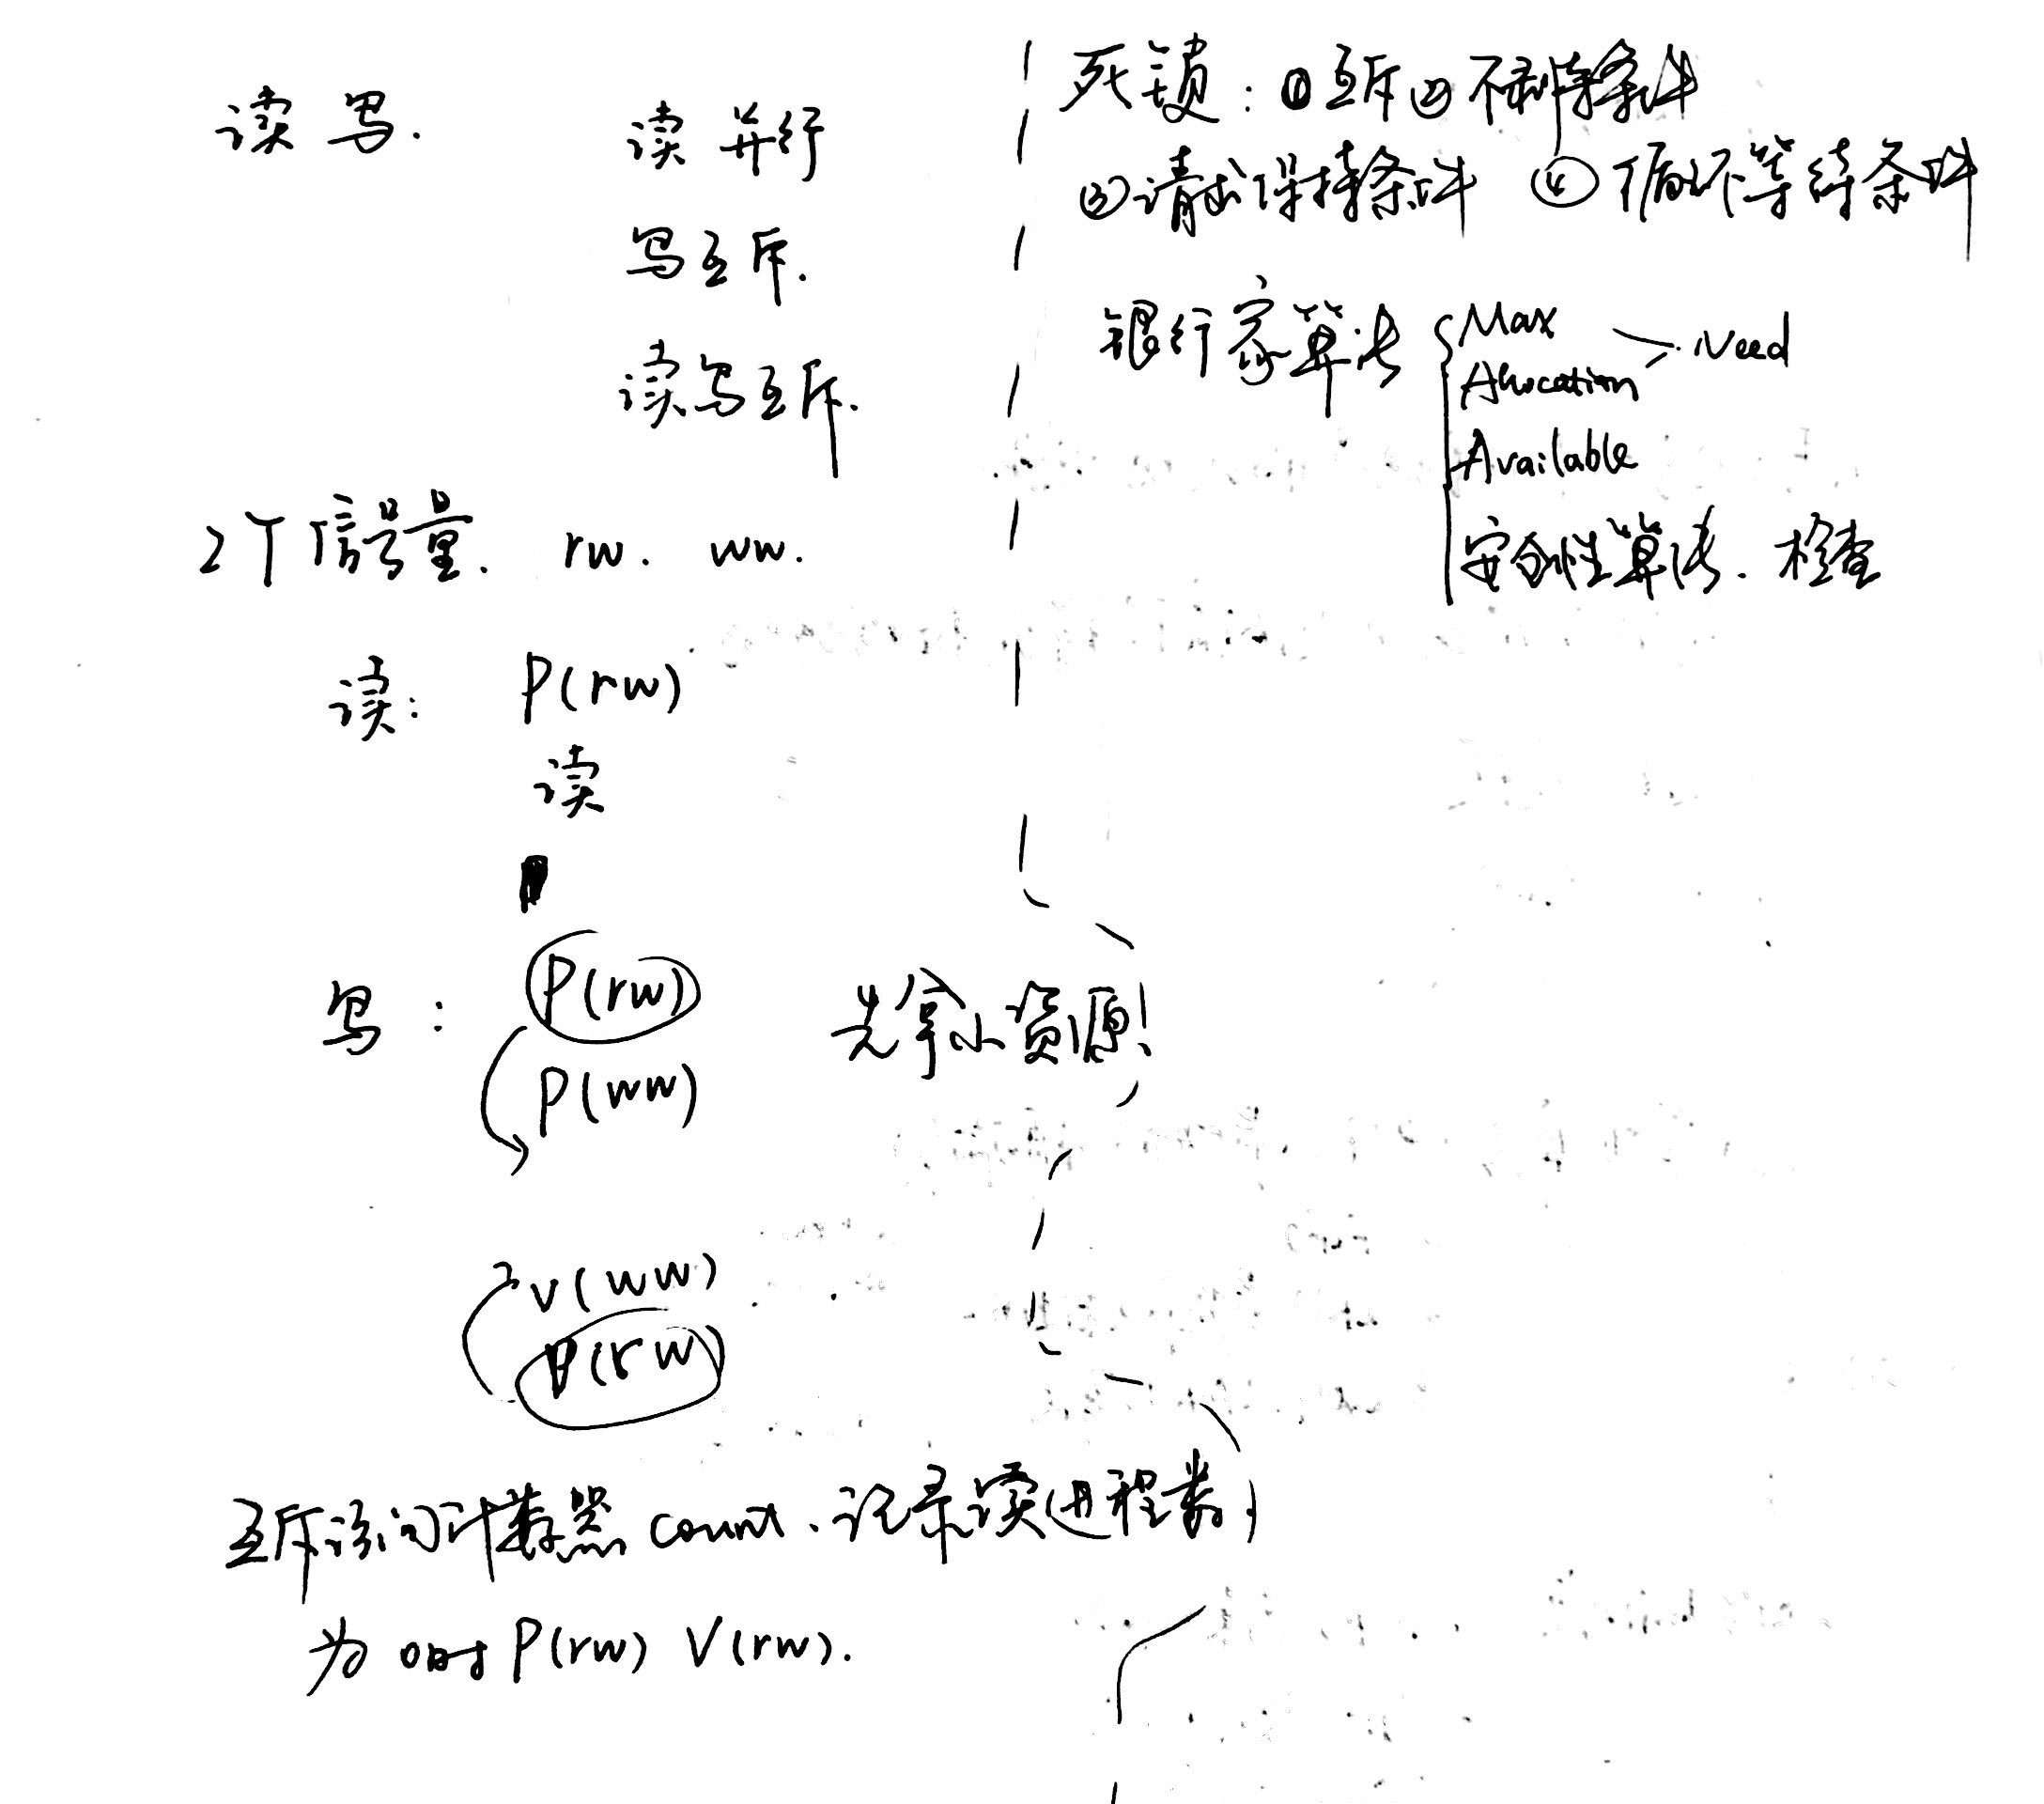 读写.
读并行
写互斥.
读写互斥.
2个信号量. rw. ww.
读: P(rw)
读
写: P(rw) 先拿小资源!
P(ww)
V(ww)
V(rw)
互斥访问计数器 count、记录读进程数,
为0时 P(rw) V(rw).
死锁: ①互斥 ②不剥夺条件
③请求保持条件 ④循环等待条件
银行家算法 Max
Allocation Need
Available
安全性算法. 检查